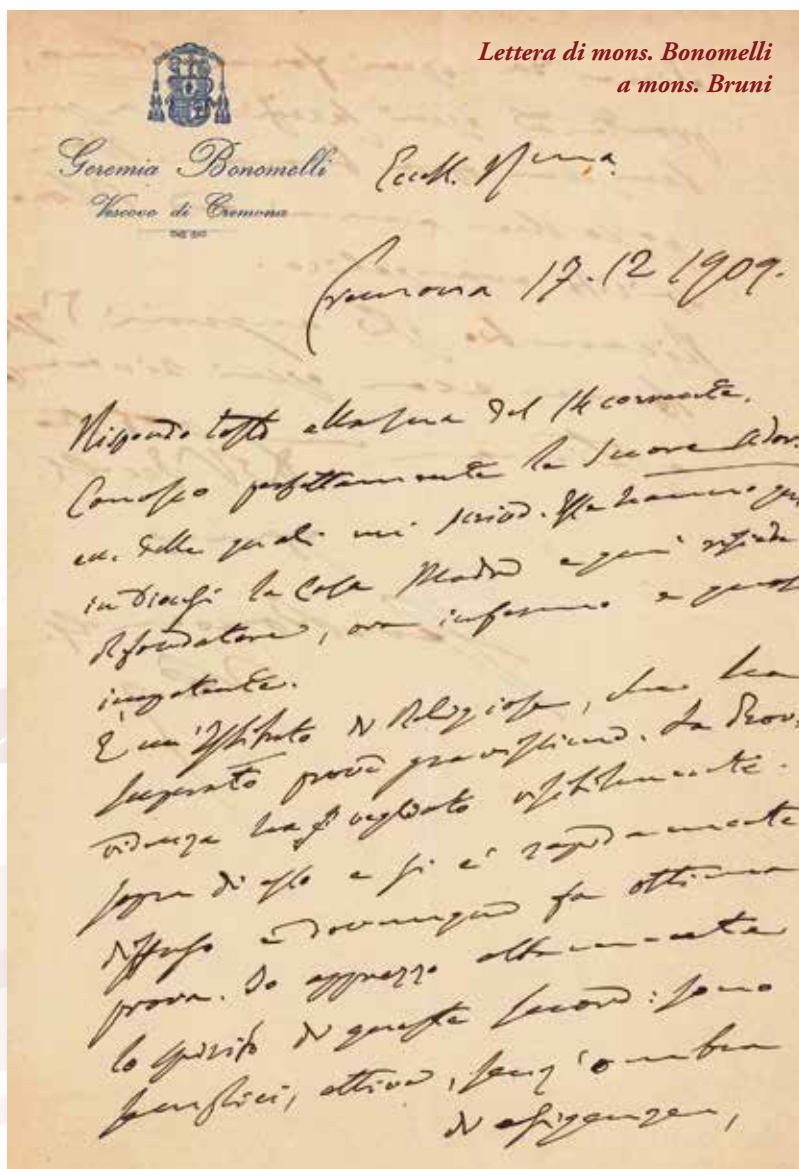 Lettera di mons. Bonomelli
a mons. Bruni
Geremia Bonomelli
Vescovo di Cremona
Eccell.
Cremona 17.12.1909.
Rispondo tosto alla sua del 14 corrente.
Conosco perfettamente le Suore Ador.
ecc. delle quali mi scrive. Esse hanno qui
in Diocesi la Casa Madre e qui risiede
il fondatore, ora infermo e quasi
impotente.
È un'Istituto di Religiose, che ha
superato prove gravissime. La Prov-
videnza ha vegliato visibilmente
sopra di esso e si è rapidamente
diffuso e dovunque fa ottima
prova. Io apprezzo altamente
lo spirito di queste suore: sono
semplici, attive, senz'ombra
di esigenze,